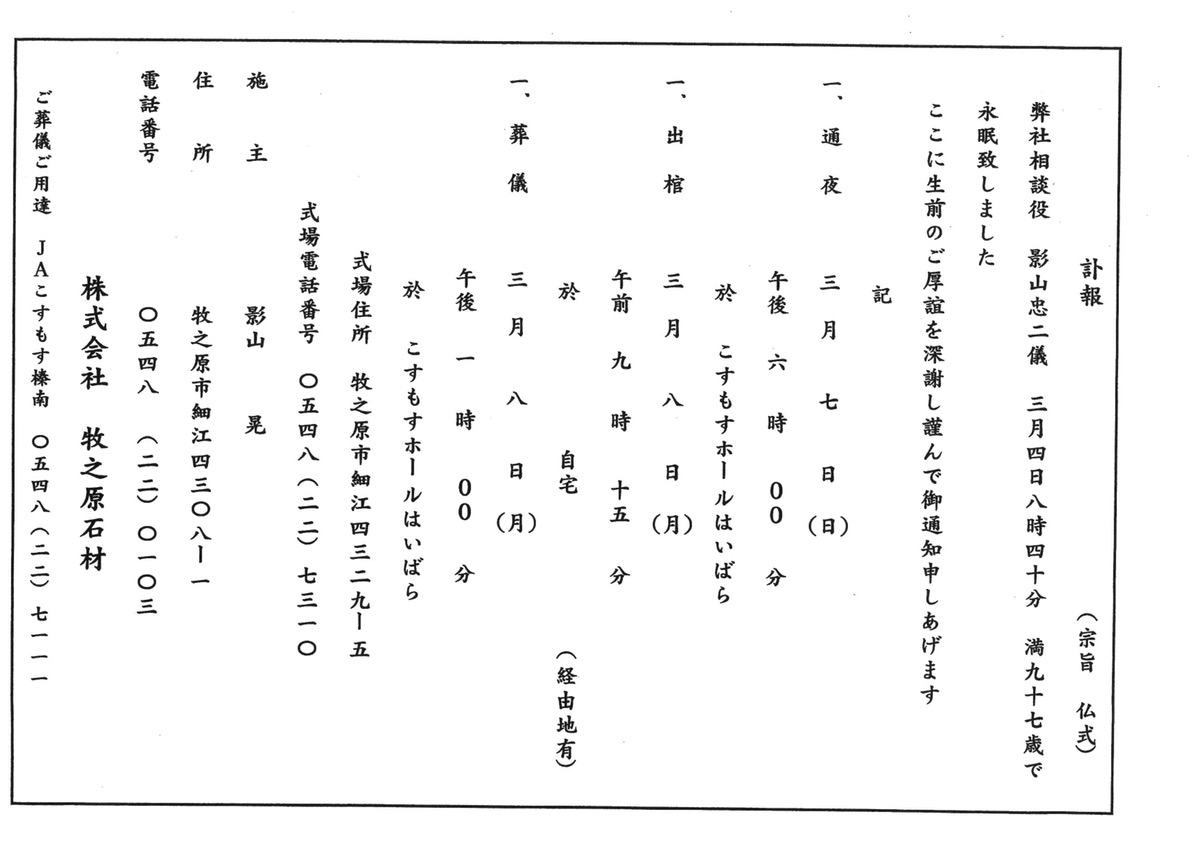 訃報　（宗旨　仏式）
弊社相談役　影山忠二儀　三月四日八時四十分　満九十七歳で
永眠致しました
ここに生前のご厚誼を深謝し謹んで御通知申しあげます
記
一、通夜　三月七日（日）
午後六時００分
於　こすもすホールはいばら
一、出棺　三月八日（月）
午前九時十五分
於　自宅　（経由地有）
一、葬儀　三月八日（月）
午後一時００分
於　こすもすホールはいばら
式場住所　牧之原市細江四三二九ー五
式場電話番号　〇五四八（二二）七三一〇
施主　影山　晃
住所　牧之原市細江四三〇八ー一
電話番号　〇五四八（二二）〇一〇三
株式会社　牧之原石材
ご葬儀ご用達　ＪＡこすもす榛南　〇五四八（二二）七一一一